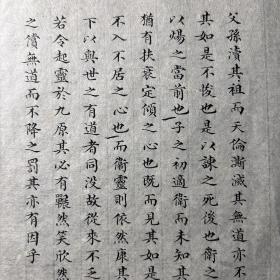 父孫瀆其祖而天倫澌滅其無道亦不
其如是不悛也是以諫之死後也衛之
以煬之當前也子之初適衛而未知其
猶有扶衰定傾之心也既而見其如是
不入不居之心也而衛靈則依然康其
下以與世之有道者同没故從來不乏
若令起靈於九原其必有囅然笑欣然
之償無道而不降之罰其亦有因乎